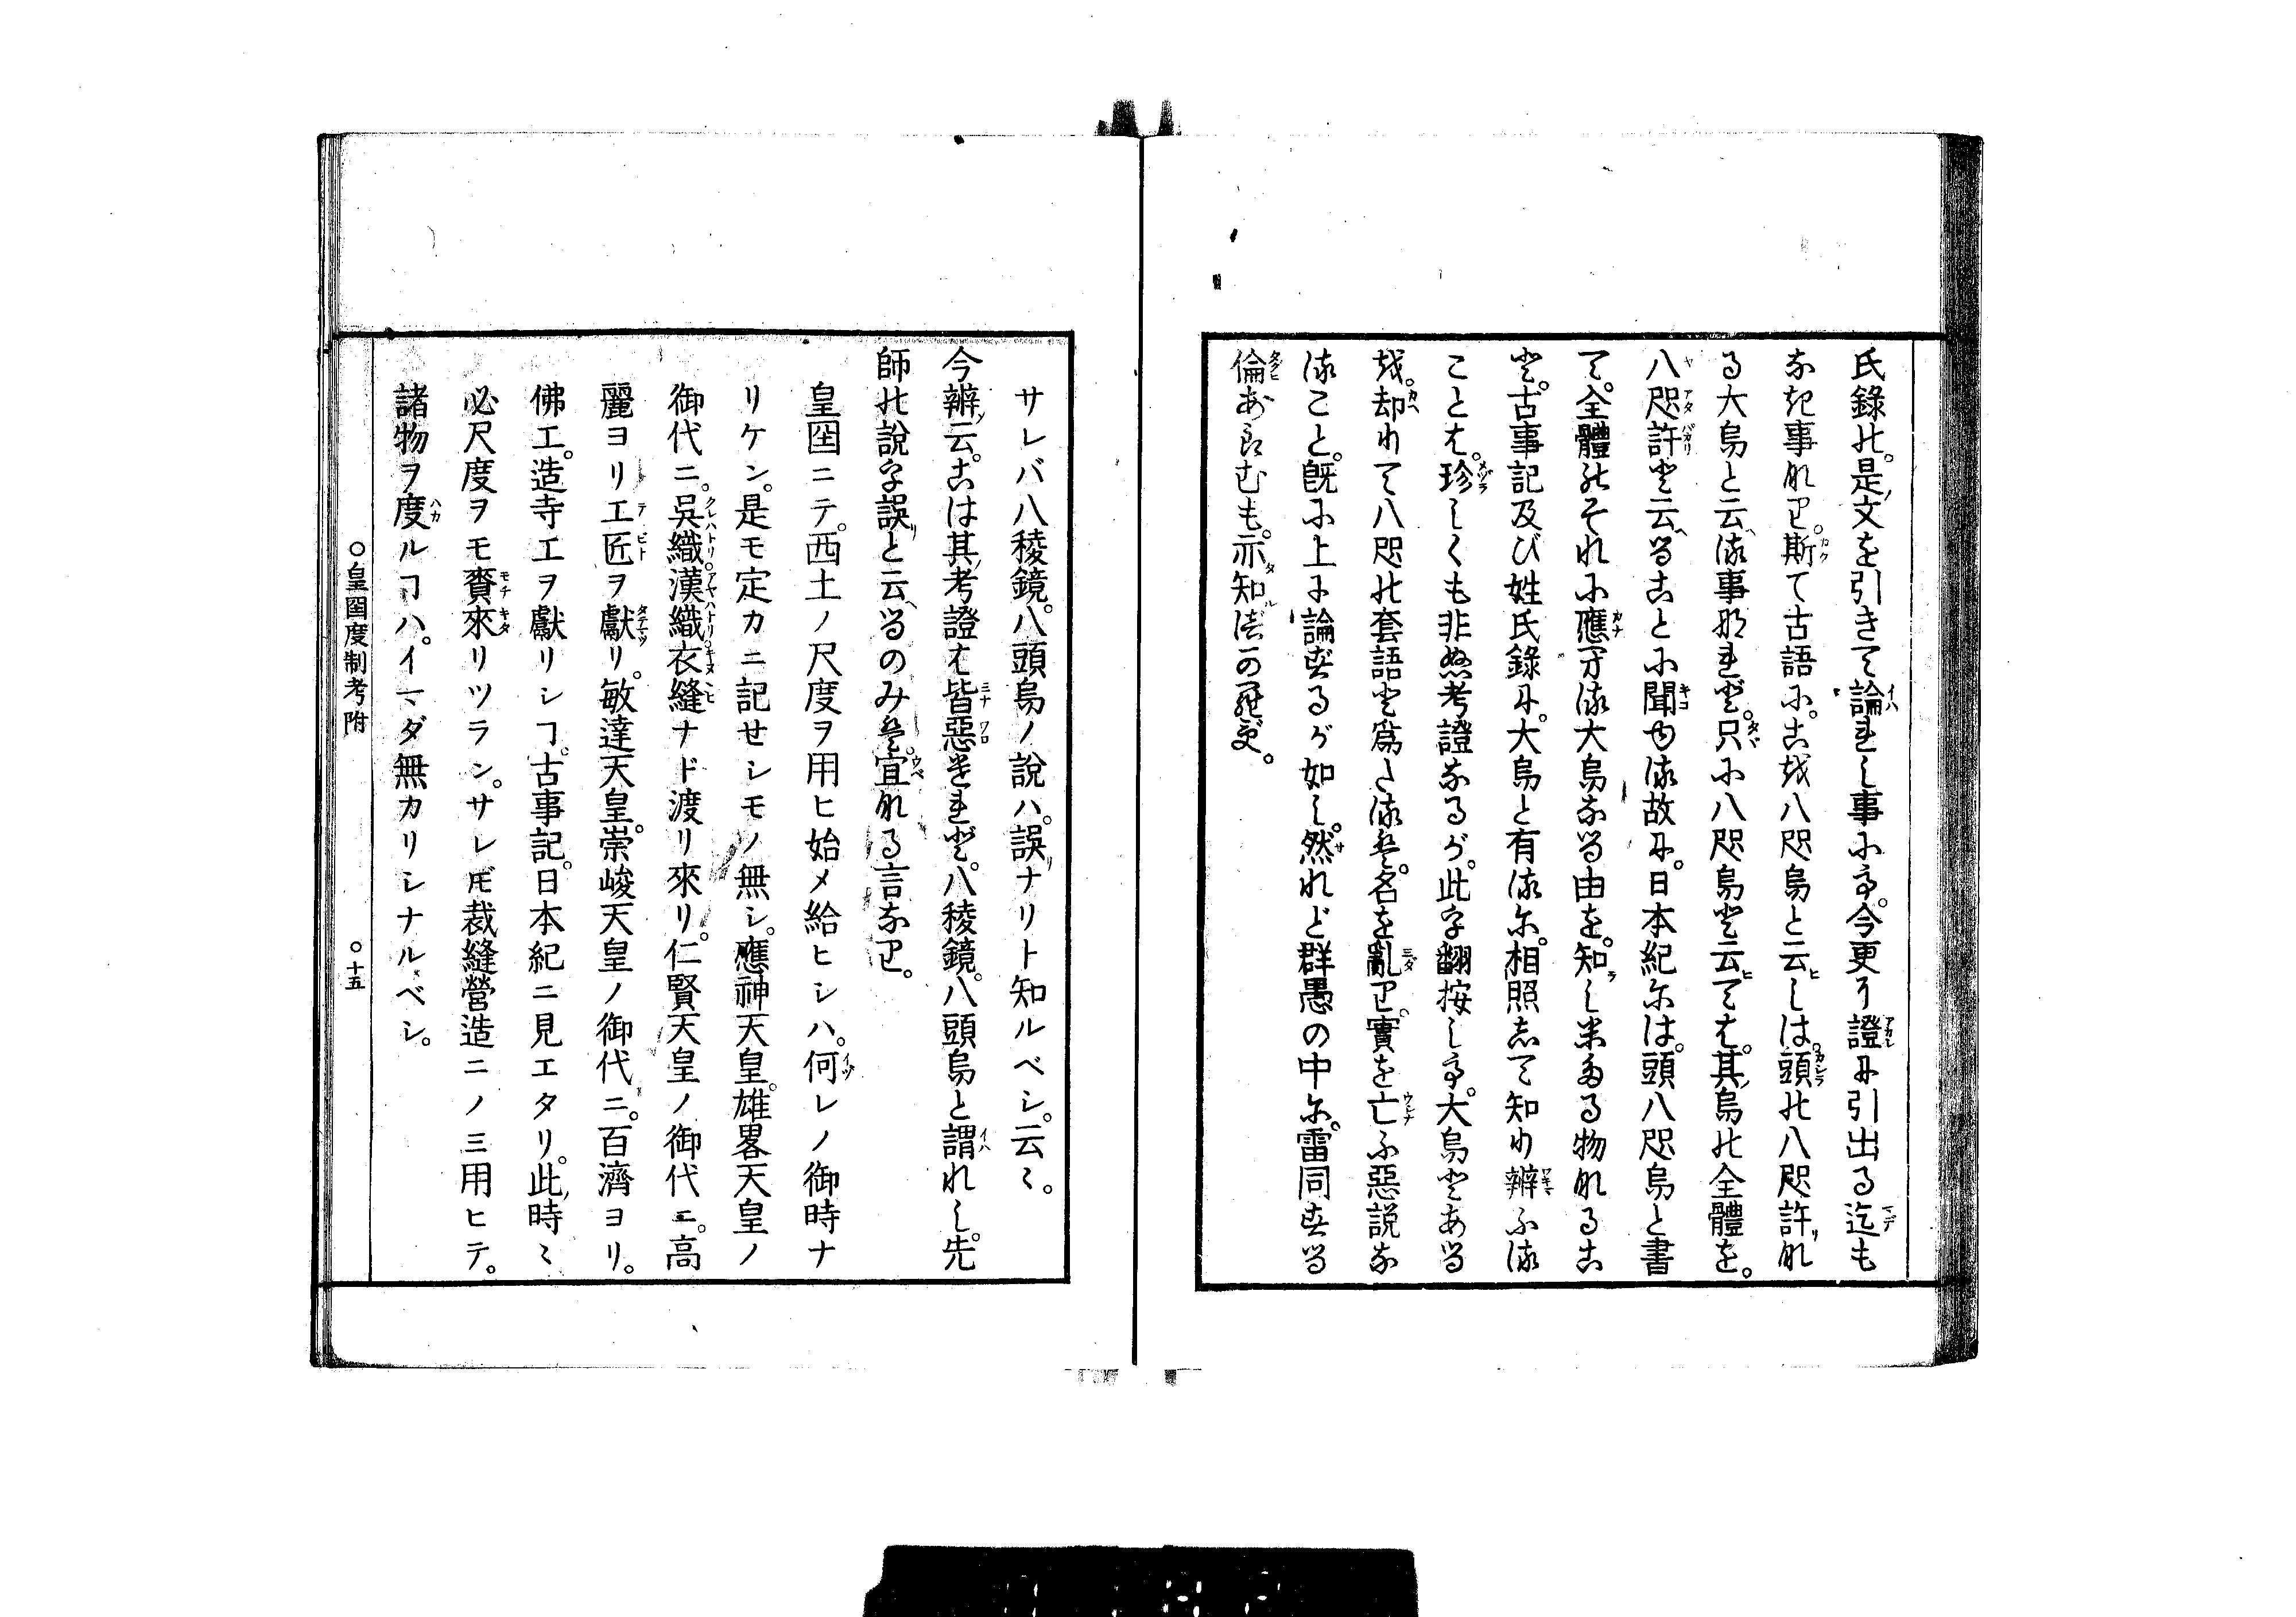 氏錄の。是文を引きて論れし事にて。今更に證に引出る迄も
なき事なり。斯て古語に。こを八咫烏と云しは。頭の八咫許な
る大烏と云る事なれど。只に八咫烏と云ては。其烏の全體を。
八咫許と云ることに聞ゆる故に。日本紀には。頭八咫烏と書
て。全體のそれに應ふる大烏なる由を。知しめたる物なるこ
と。古事記及び姓氏錄に。大烏と有るに。相照して知り辨ふる
ことは。珍しくも非ぬ考證なるが。此字翻按して。大烏とある
を。却りて八咫の套語と爲たるは。名を亂り。實を亡ふ惡説な
ること。既に上に論ずるが如し。然れど群愚の中に。雷同する
倫あらむも。亦知べからず。
サレバ八稜鏡。八頭烏ノ說ハ。誤ナリト知ルベシ。云〻。
今辨云。こは其考證は皆惡けれど。八稜鏡。八頭烏と謂れし。先
師の說字誤と云るのみは。宜なる言なり。
皇囶ニテ。西土ノ尺度ヲ用ヒ始メ給ヒシハ。何レノ御時ナ
リケン。是モ定カニ記せシモノ無シ。應神天皇。雄畧天皇ノ
御代ニ。吳織漢織衣縫ナド渡リ來リ。仁賢天皇ノ御代ニ。高
麗ヨリ工匠ヲ獻リ。敏達天皇。崇峻天皇ノ御代ニ。百濟ヨリ。
佛工。造寺工ヲ獻リシヿ。古事記。日本紀ニ見エタリ。此時〻
必尺度ヲモ賷來リツラン。サレドモ裁縫營造ニノミ用ヒテ。
諸物ヲ度ルヿハ。イマダ無カリシナルベシ。
○皇囶度制考附
○十五